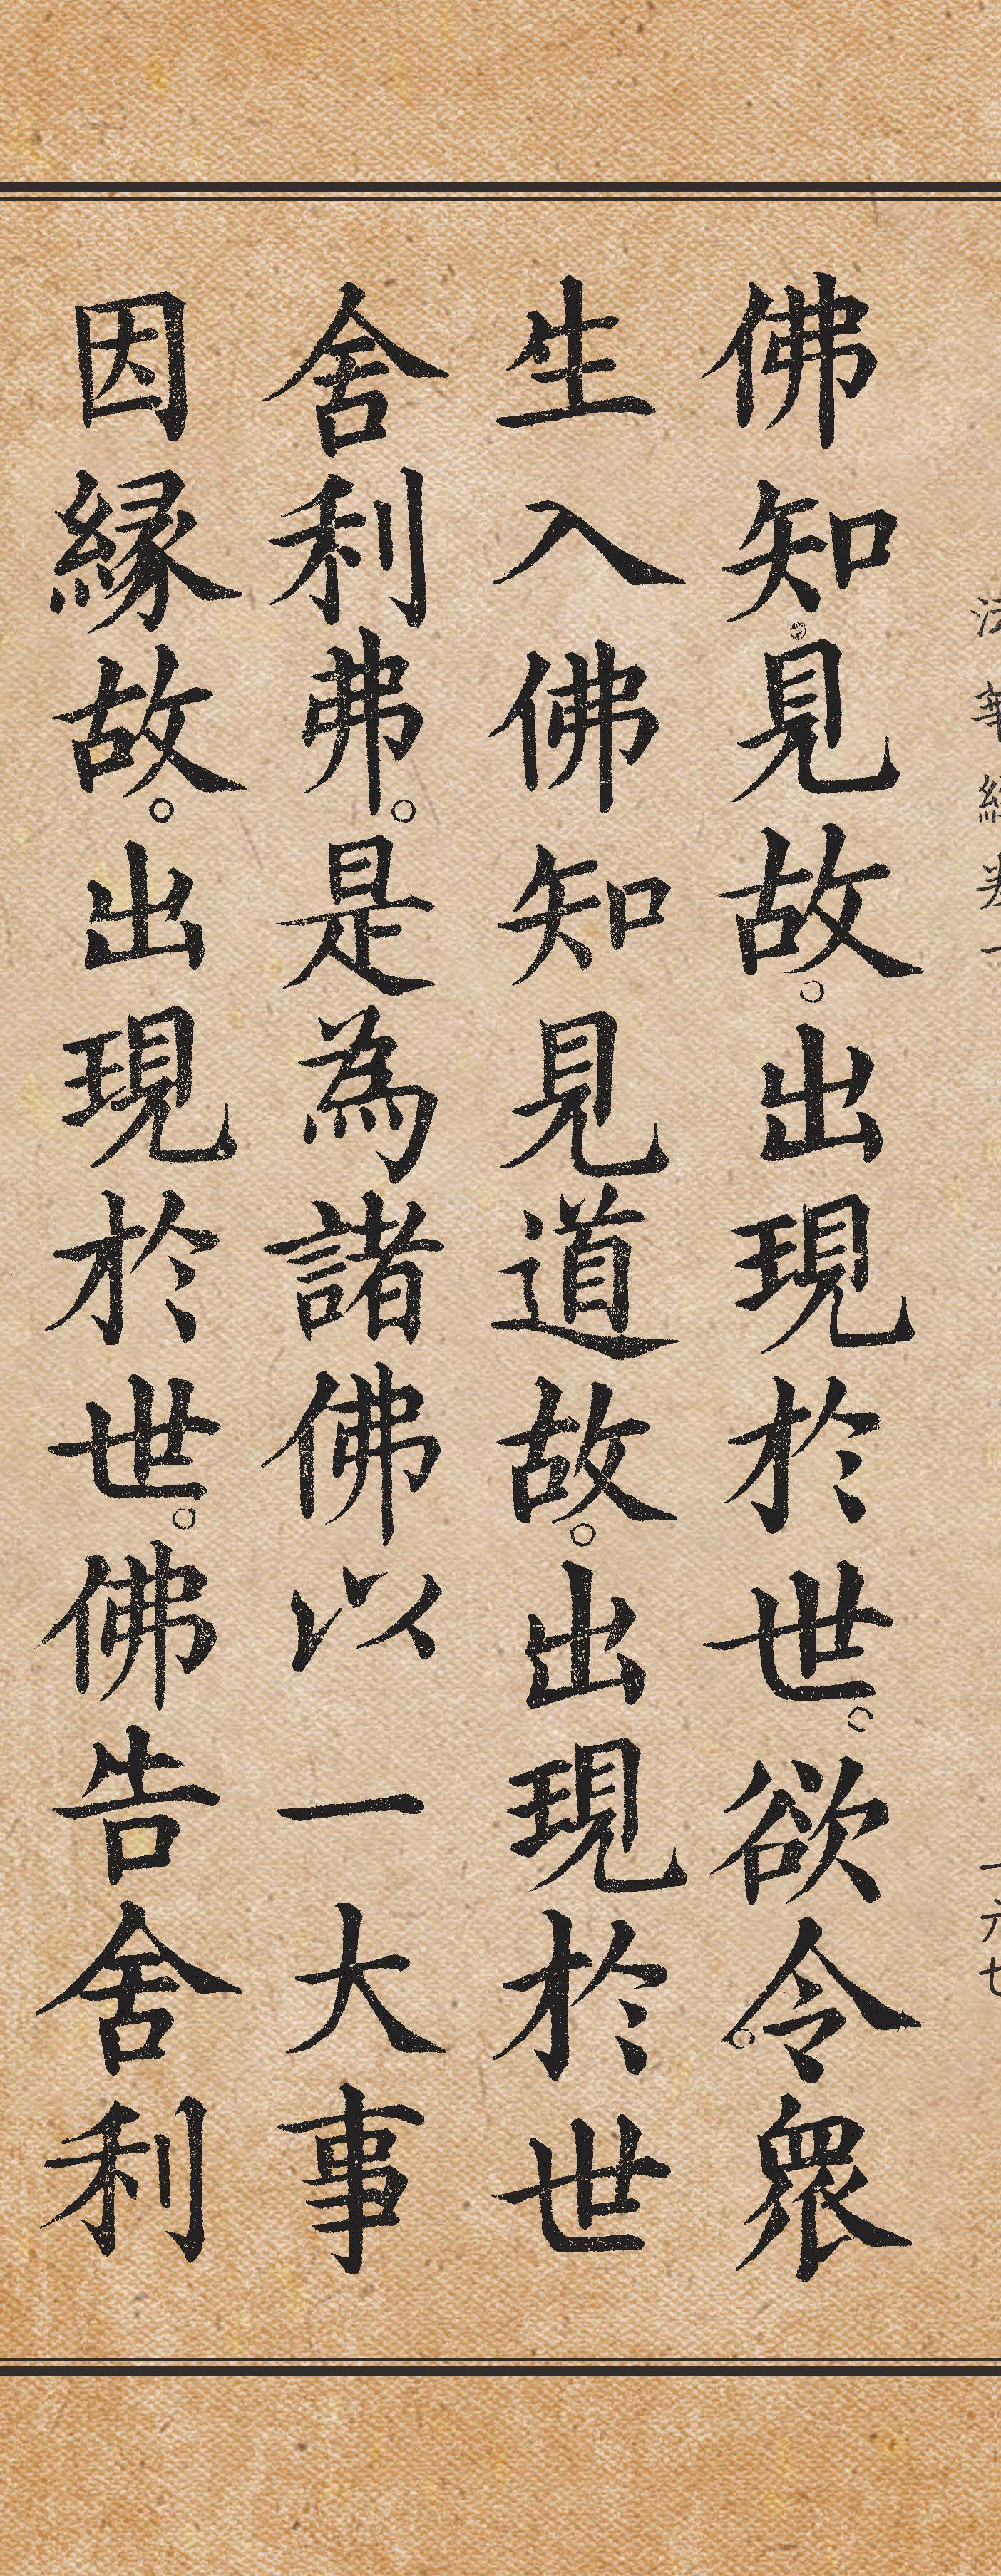 佛知見故。出現於世。欲令眾
生入佛知見道故。出現於世
舍利弗。是為諸佛以一大事
因緣故。出現於世。佛告舍利